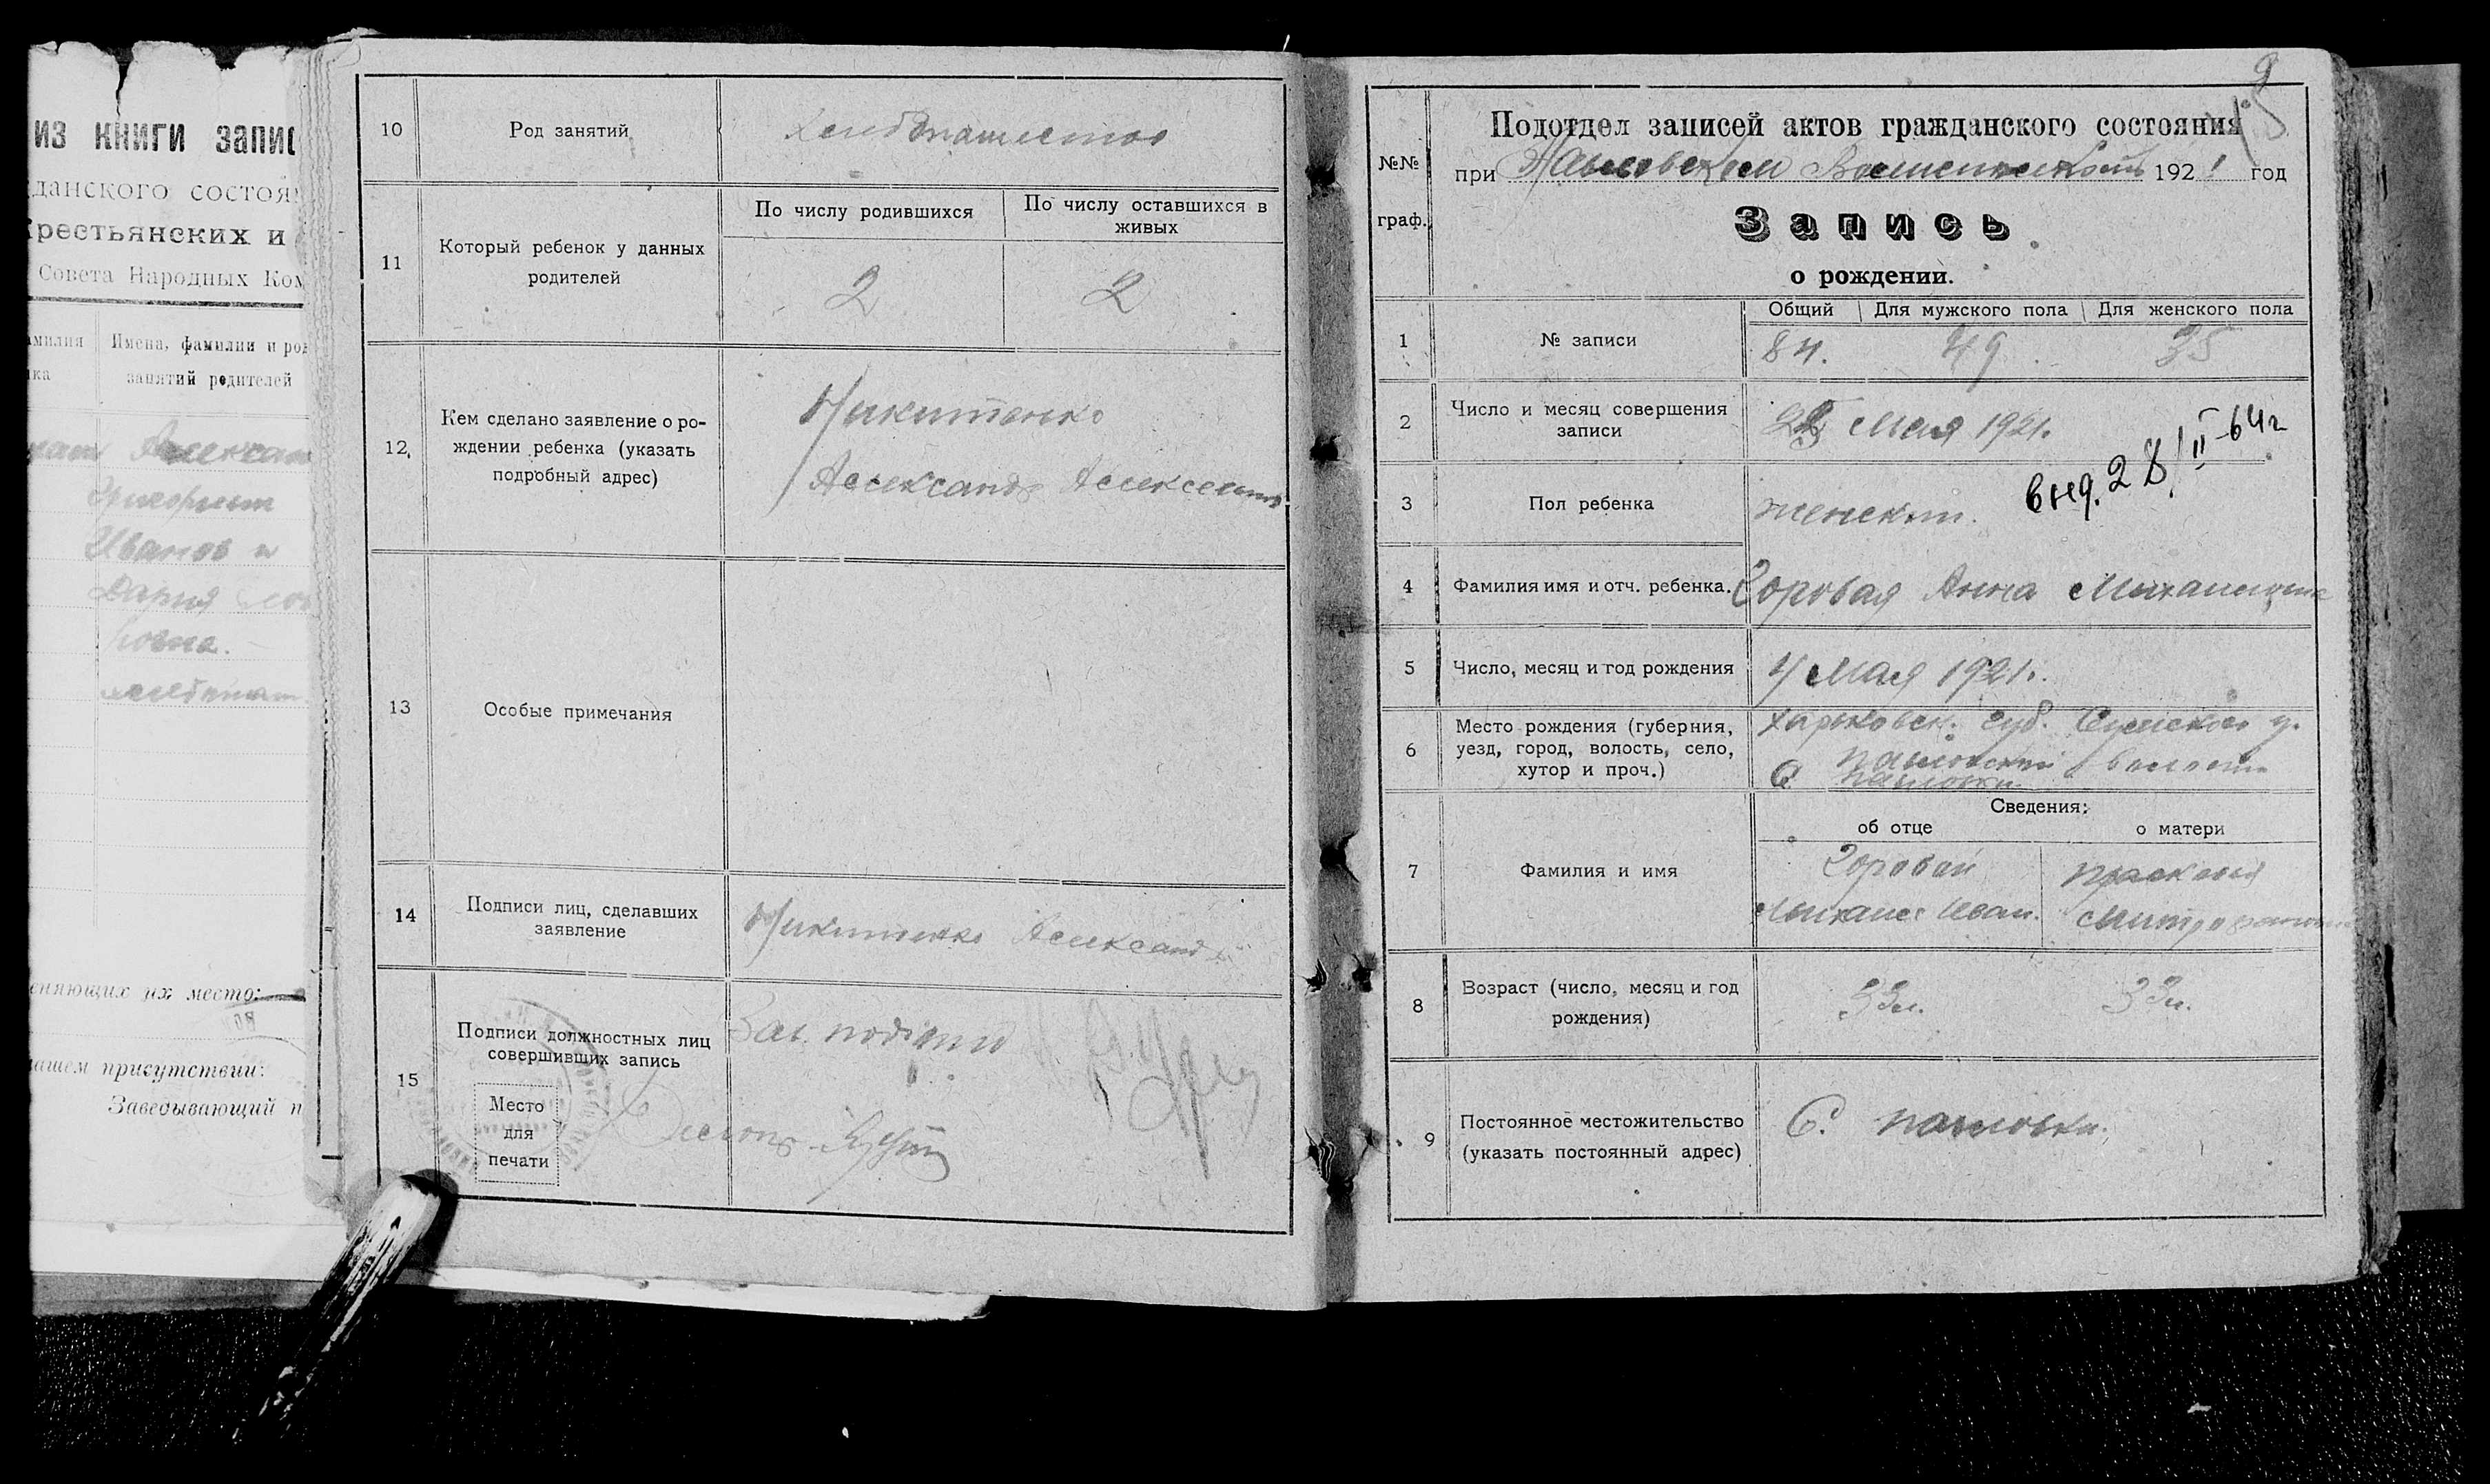 из книги запис
данского состоя
крестьянских и
Совета Народных Ком
амилия
Имена, фамилии и род
занятий родителей
Григорьев
Иванов и
Дария
ковна.
еняющих их место:
нашем присутствии:
Заведывающий п
10
Род занятий
11
Который ребенок у данных
родителей
По числу родившихся
По числу оставшихся в
живых
2
2
12.
Кем сделано заявление о ро-
ждении ребенка (указать
подробный адрес)
Никитенко
Александр
13
Особые примечания
14
Подписи лиц, сделавших
заявление
Никитенко Александр
15
Подписи должностных лиц
совершивших запись
Место
для
печати
Зав.
9
№№
граф.
Подотдел записей актов гражданского состояния
при 1921 год
Запись
о рождении.
1
№ записи
Общий
Для мужского пола
Для женского пола
84.
49
35
2
Число и месяц совершения
записи
Мая 1921.
внд. 28/II-64г
3
Пол ребенка
женский.
4
Фамилия имя и отч. ребенка.
Горовая Анна Михайловна
5
Число, месяц и год рождения
4 Мая 1921г.
6
Место рождения (губерния,
уезд, город, волость, село,
хутор и проч.)
Харьковск. губ. Сумского у.
Павловской волости
с Павловки
7
Фамилия и имя
Сведения:
об отце
о матери
Горовой
Михаил Иван.
Прасковия
Митрофановна
8
Возраст (число, месяц и год
рождения)
33л.
33л.
9
Постоянное местожительство
(указать постоянный адрес)
С. Павловки.